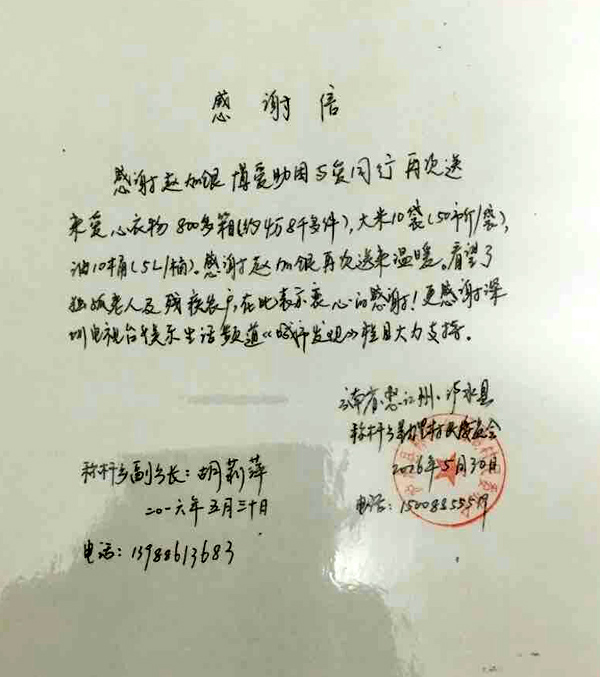 感谢信
感谢赵加银博爱助困与爱同行再次送
来爱心衣物800多箱(约4万8千多件),大米10袋(50市斤/袋),
油10桶(5L/桶)。感谢赵加银再次送来温暖。看望了
孤孤老人及残疾贫户,在此表示衷心的感谢!更感谢深
圳电视台娱乐生活频道《城市发现》栏目大力支持。
云南省怒江州、泸水县
称杆乡 村民委员会
称杆乡副乡长:胡莉萍
2026年5月30日
二〇一六年五月三十日
电话:15008855519
电话:13988613683